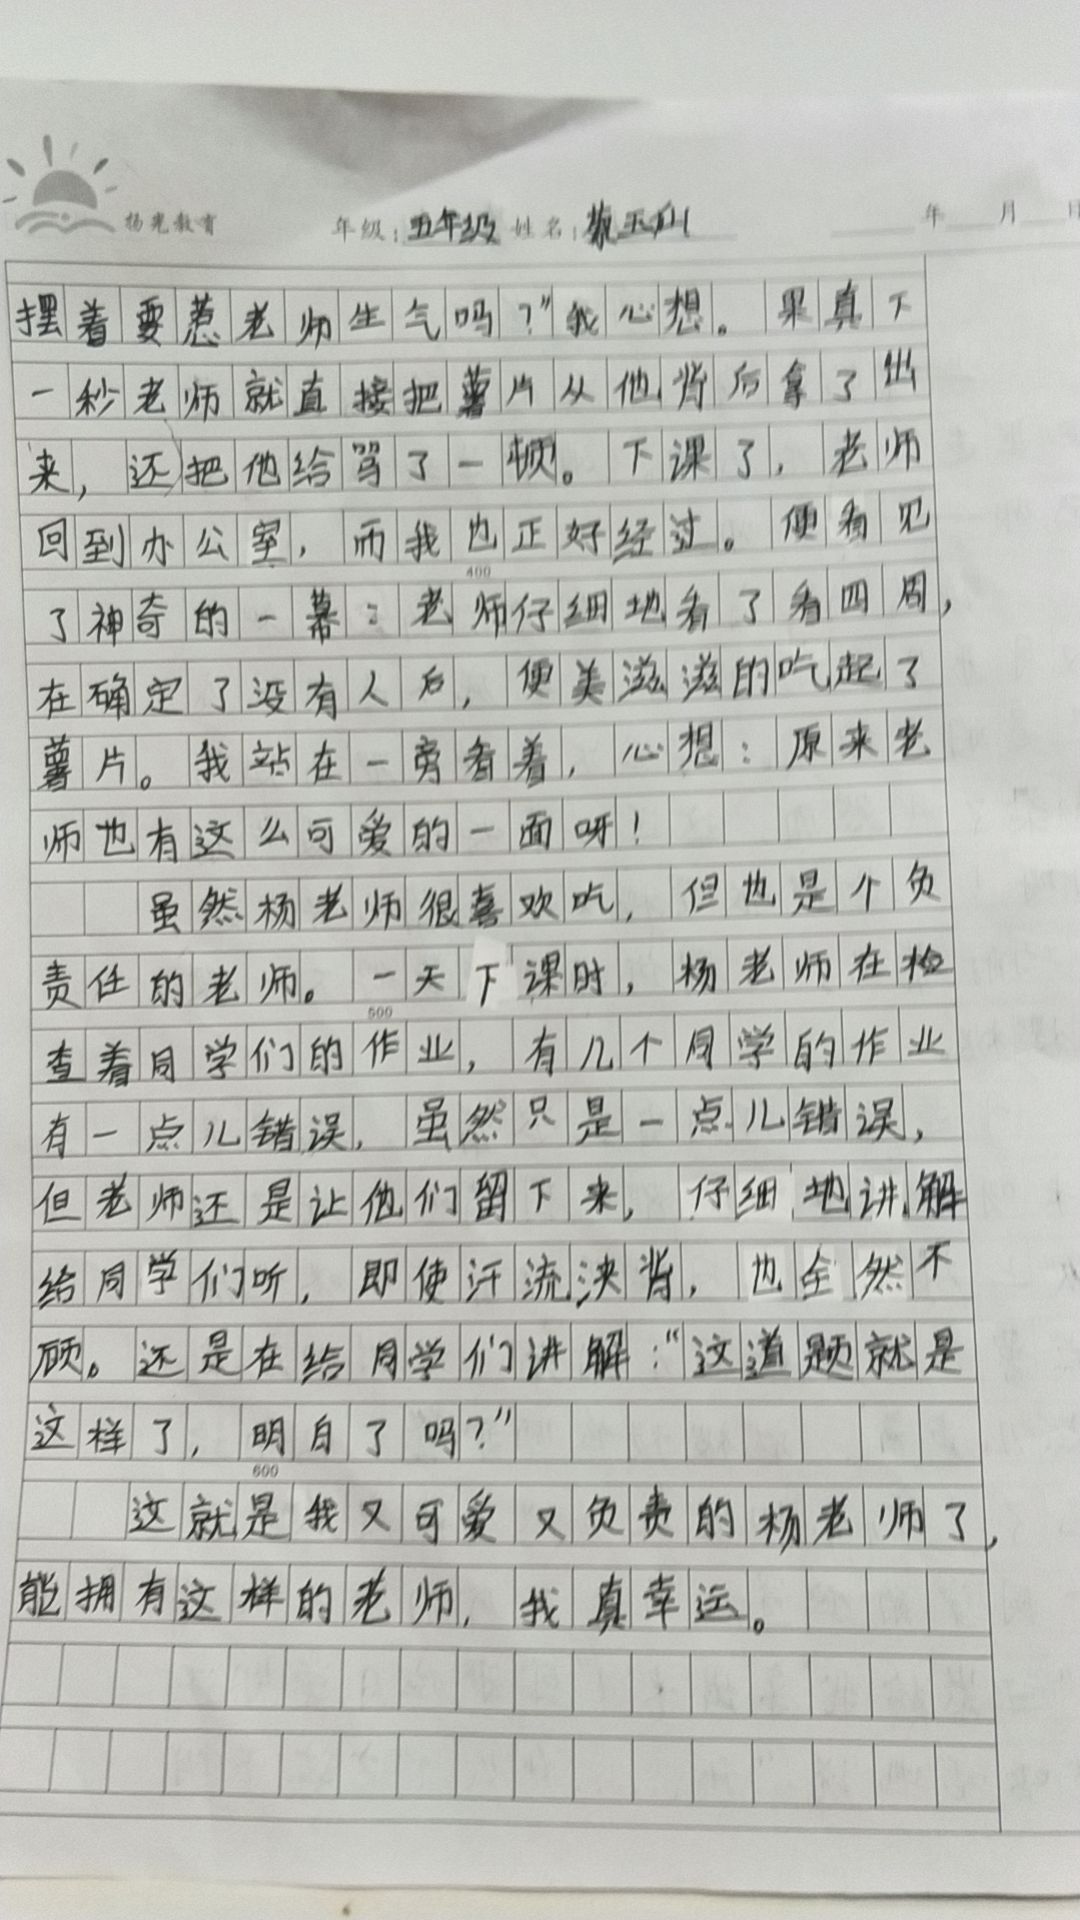 扬光教育 年级：五年级 姓名： 玉山 年 月 日
摆着要惹老师生气吗？”我心想。果真下
一秒老师就直接把薯片从他背后拿了出
来，还把他给骂了一顿。下课了，老师
回到办公室，而我也正好经过。便看见
400
了神奇的一幕：老师仔细地看了看四周，
在确定了没有人后，便美滋滋的吃起了
薯片。我站在一旁看着，心想：原来老
师也有这么可爱的一面呀！
虽然杨老师很喜欢吃，但也是个负
责任的老师。一天下课时，杨老师在检
500
查着同学们的作业，有几个同学的作业
有一点儿错误，虽然只是一点儿错误，
但老师还是让他们留下来，仔细地讲解
给同学们听，即使汗流浃背，也全然不
顾。还是在给同学们讲解：“这道题就是
这样了，明白了吗？”
600
这就是我又可爱又负责的杨老师了，
能拥有这样的老师，我真幸运。